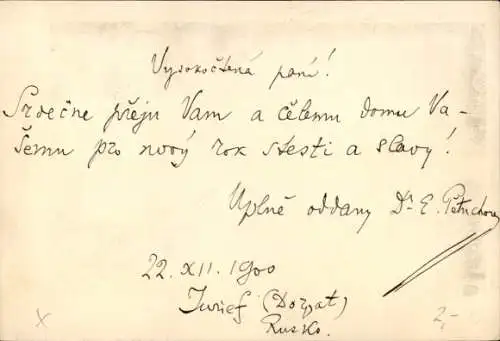 Vysokočtená paní!
Srdečne přeju Vam a cělemu domu Va-
šemu pro nový rok stesti a slavy!
Uplně oddany Dr E. Pětuchow
22. XII. 1900
Jurief (Dorpat)
Rusko.
x
2,-